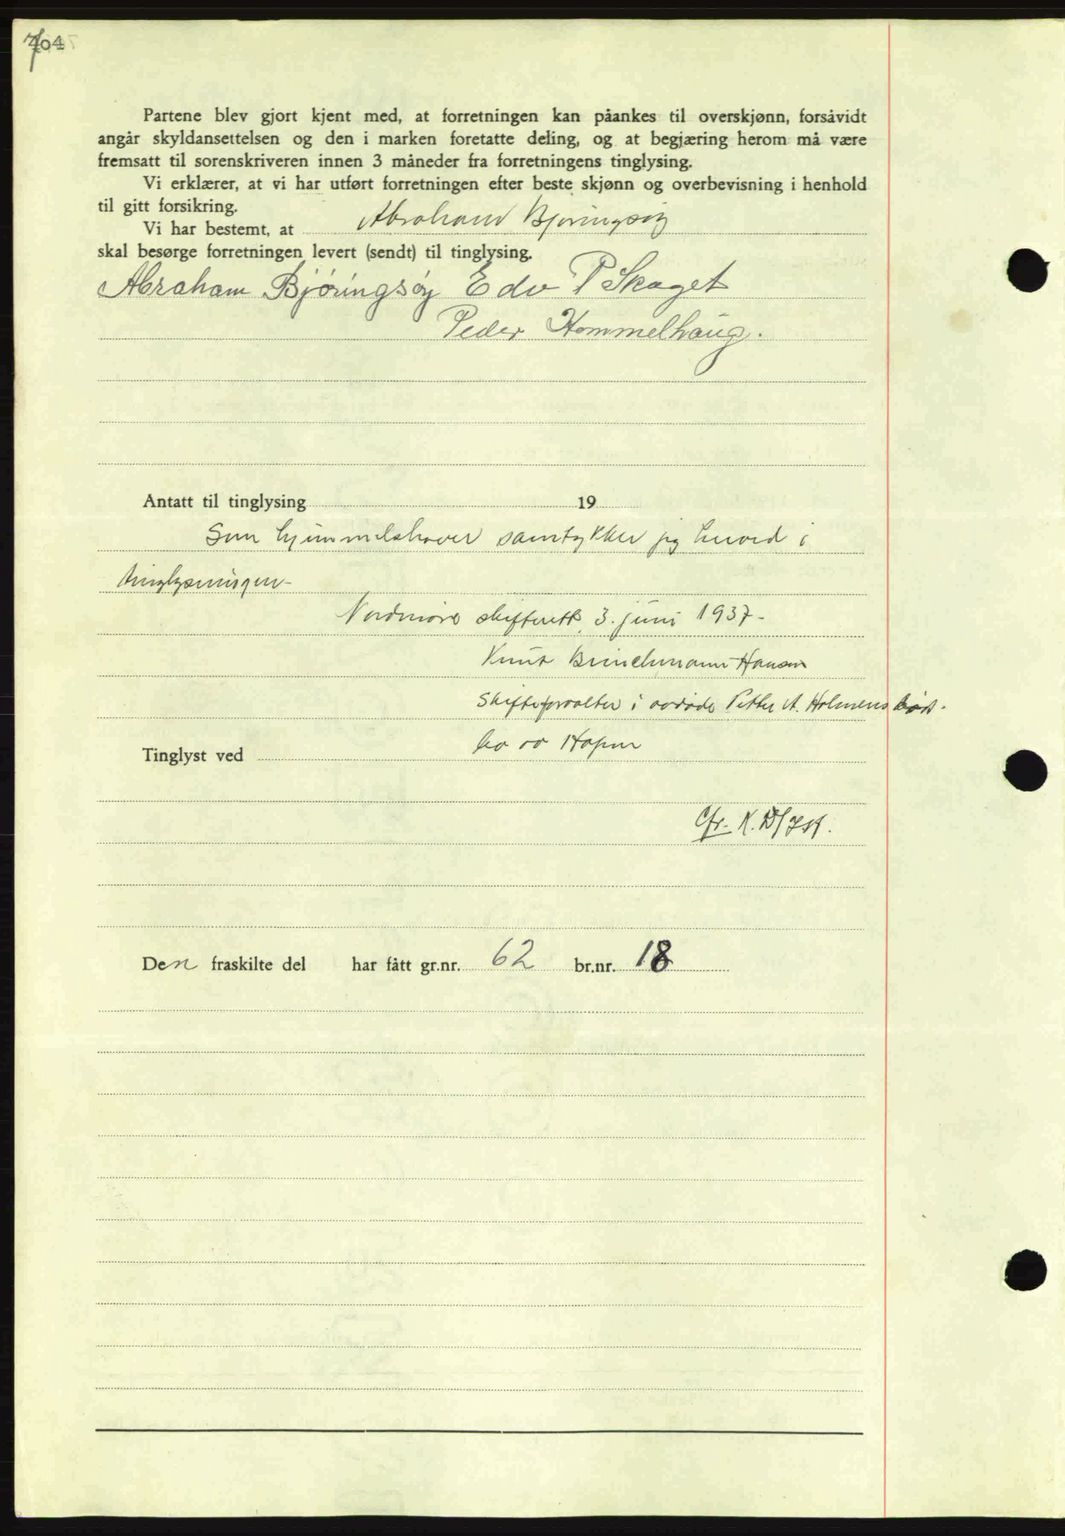 704
Partene blev gjort kjent med, at forretningen kan påankes til overskjønn, forsåvidt
angår skyldansettelsen og den i marken foretatte deling, og at begjæring herom må være
fremsatt til sorenskriveren innen 3 måneder fra forretningens tinglysing.
Vi erklærer, at vi har utført forretningen efter beste skjønn og overbevisning i henhold
til gitt forsikring.
Vi har bestemt, at Abraham Bjøringsøy
skal besørge forretningen levert (sendt) til tinglysing.
Abraham Bjøringsøy Edv P Skaget
Peder Hommelhaug.
Antatt til tinglysing 19
Som hjemmelshaver samtykker jeg herved i
tinglysningen-
Nordmøre skifterett, 3. juni 1937-
Knut Brinchmann Hansen
Skifteforvalter i avdøde Petter A. Holmens
bo
Tinglyst ved
Cfr. K.
Den fraskilte del har fått gr.nr. 62 br.nr. 18